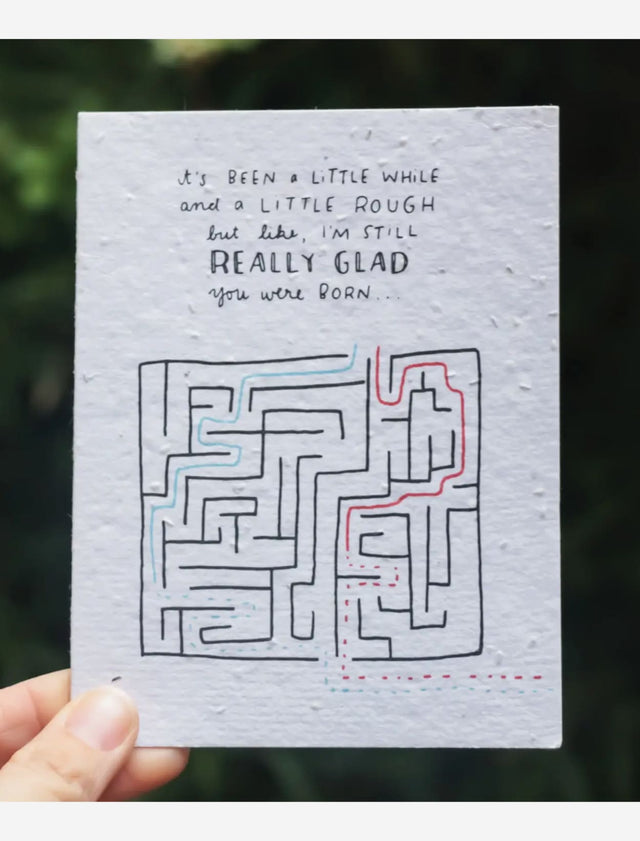 it's BEEN a LiTTLE WHiLE
and a LITTLE ROUGH
but like, I'M STILL
REALLY GLAD
you were BORN...